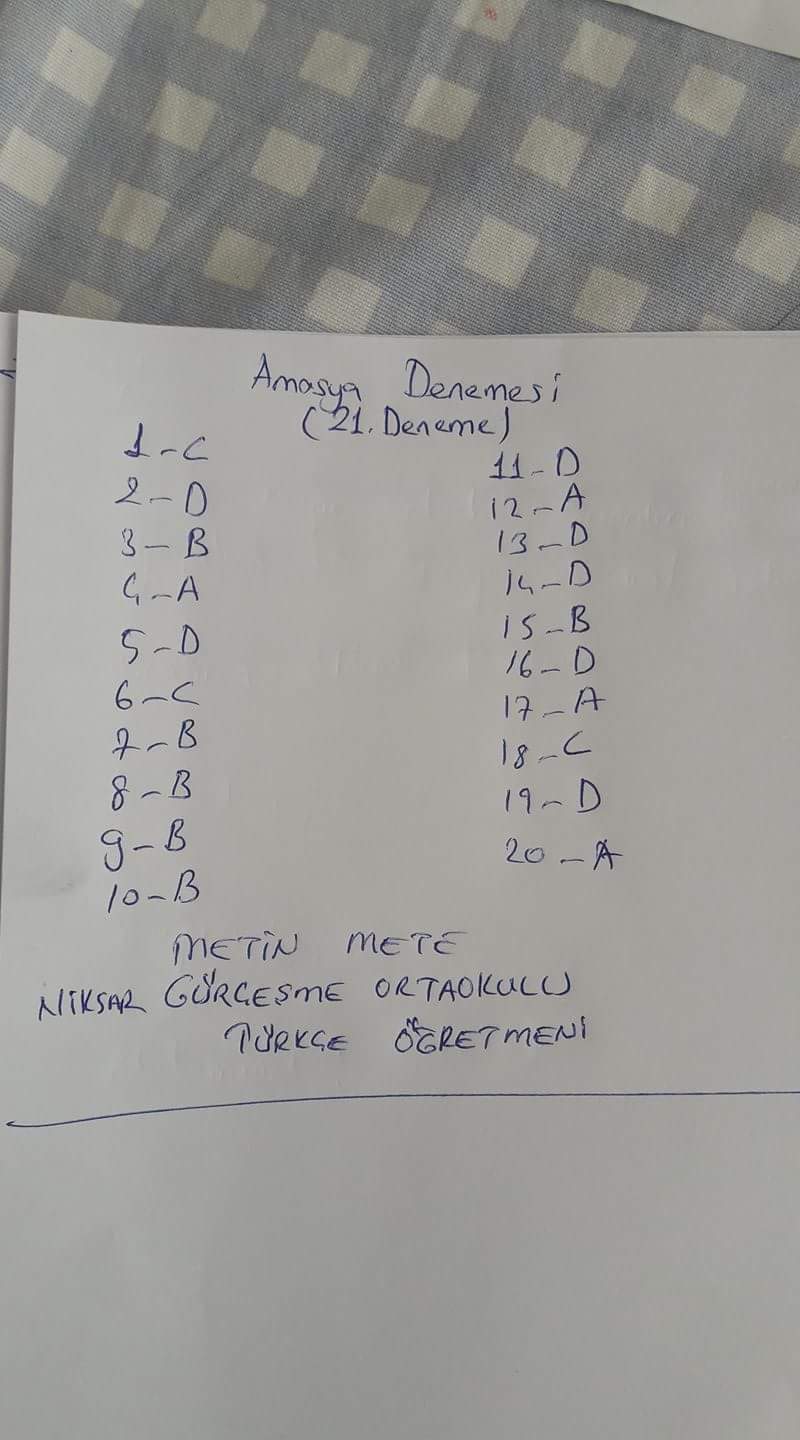 Amasya Denemesi
(21. Deneme)
1-C
2-D
3-B
4-A
5-D
6-C
7-B
8-B
9-B
10-B
11-D
12-A
13-D
14-D
15-B
16-D
17-A
18-C
19-D
20-A
METİN METE
NİKSAR GÜRÇEŞME ORTAOKULU
TÜRKÇE ÖĞRETMENİ